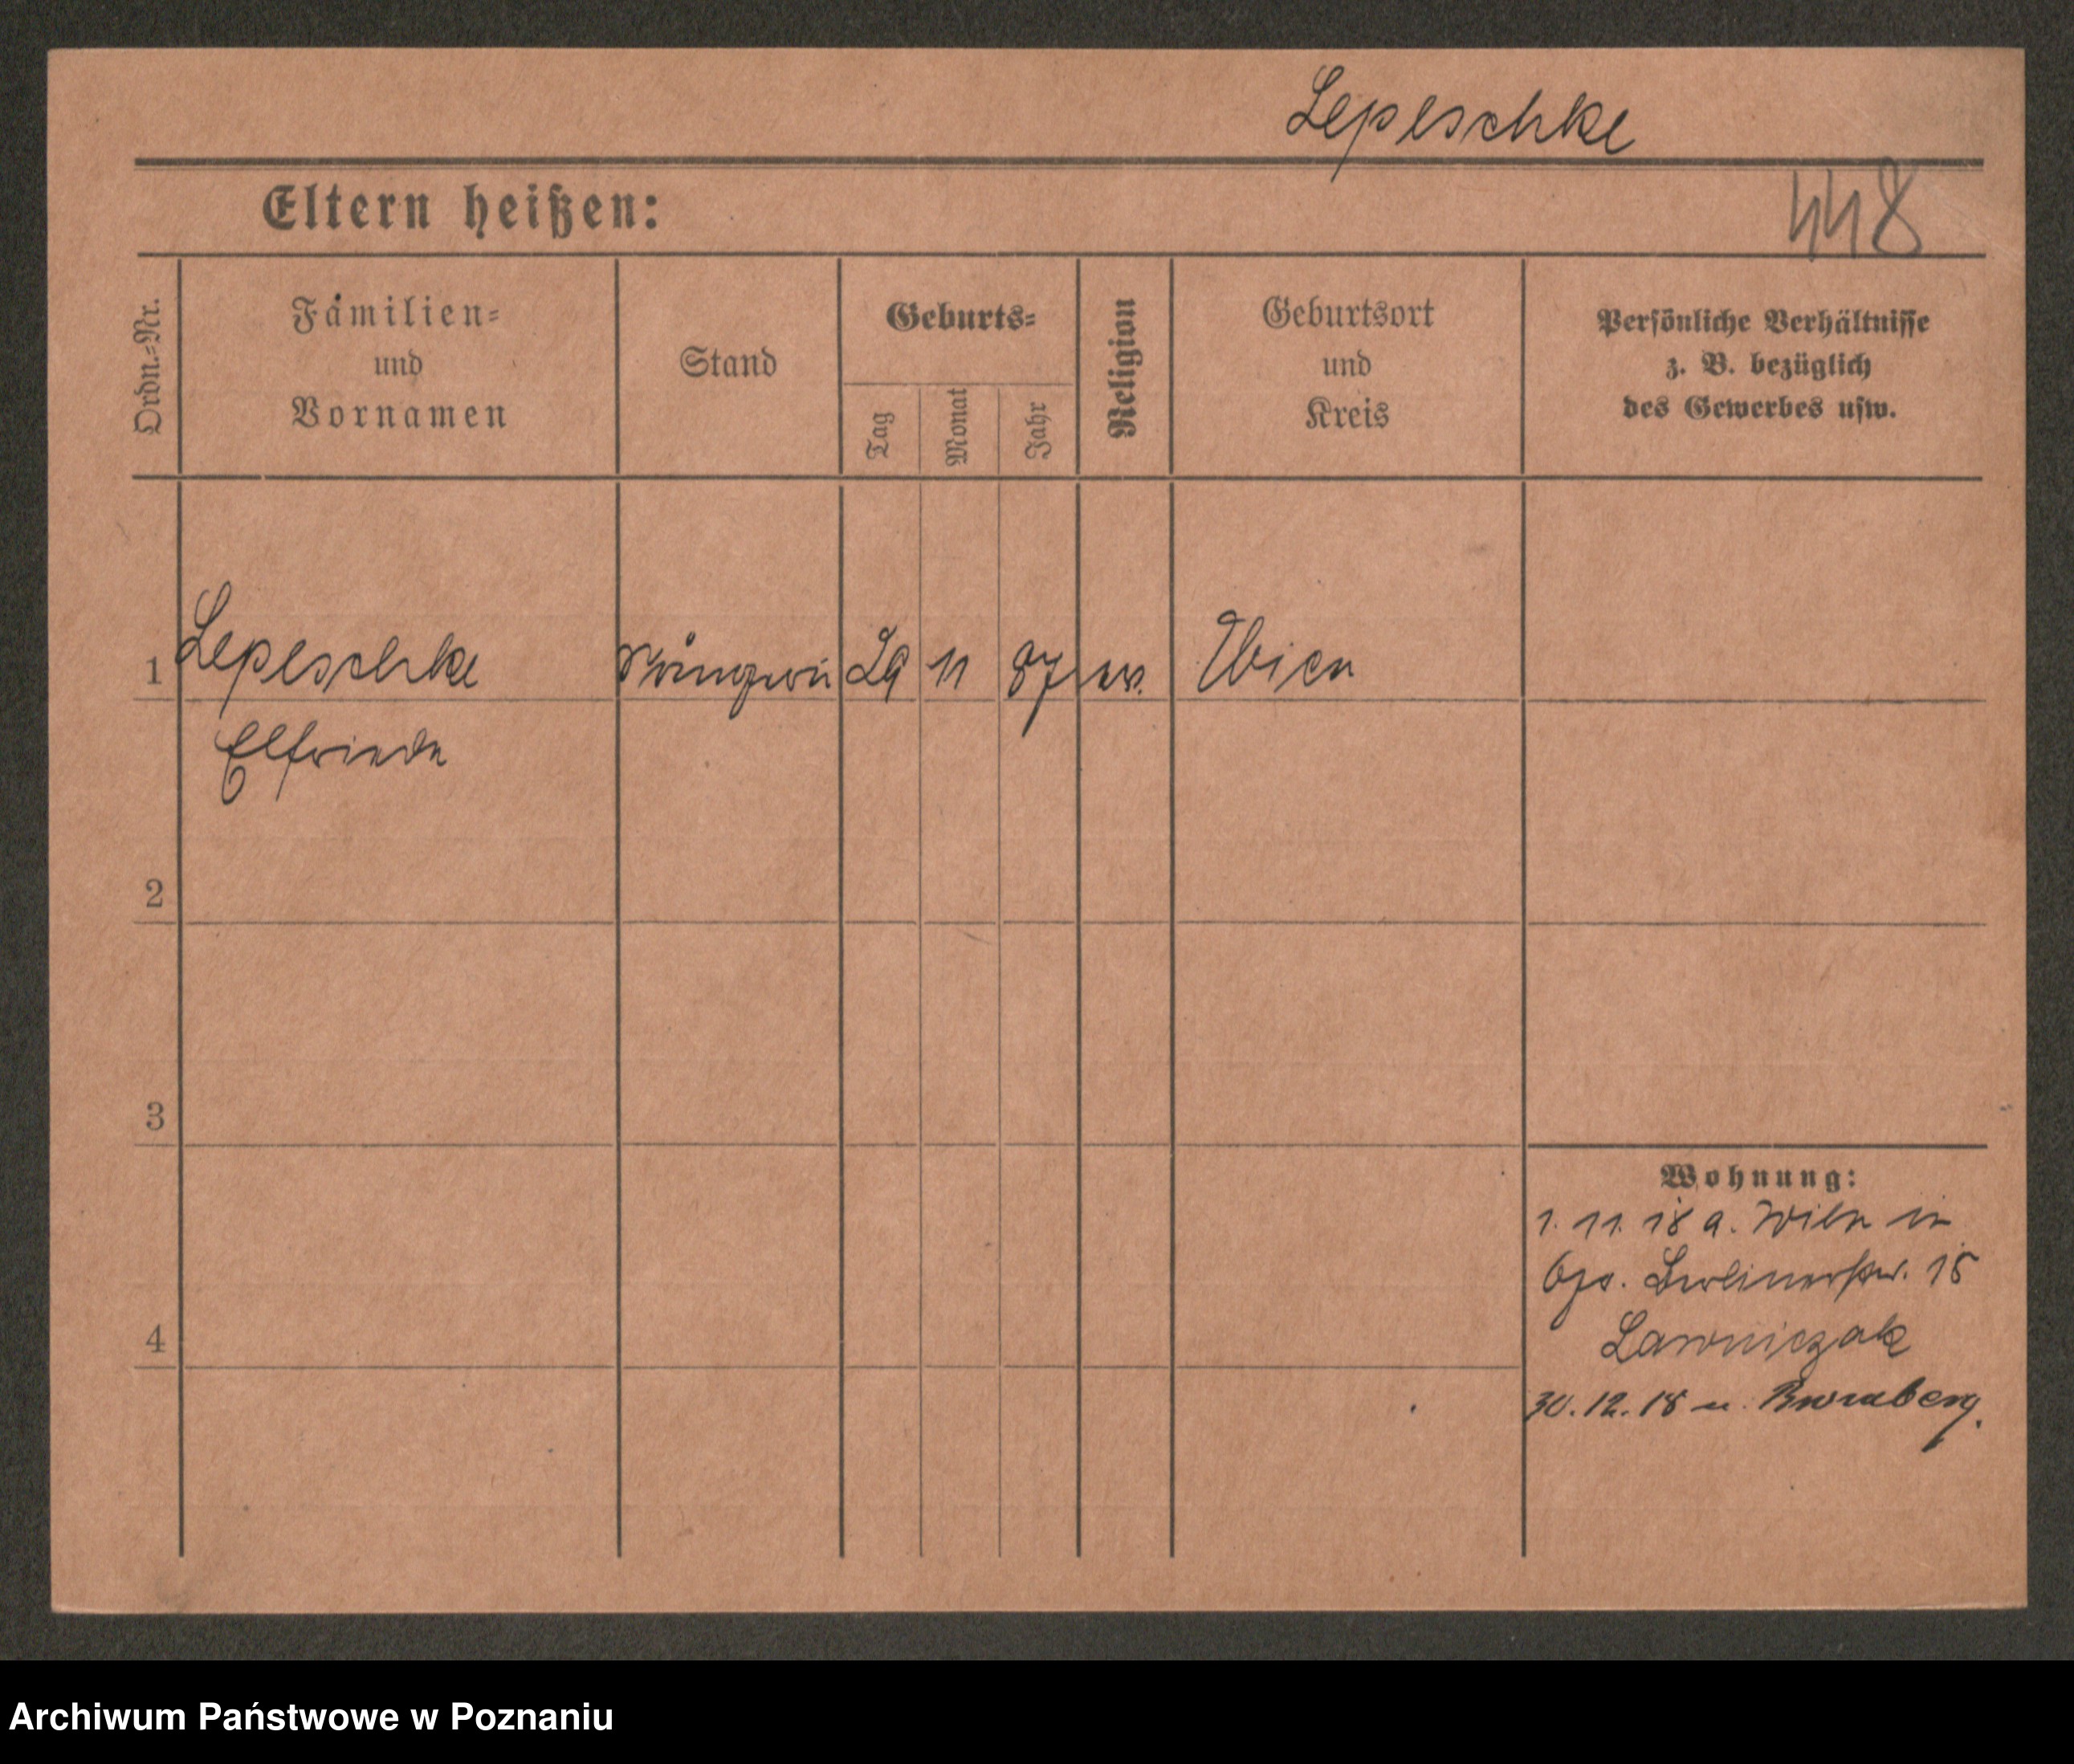 Lepeschke
448
Eltern heißen:
Ordn.=Nr.
Familien=
und
Vornamen
Stand
Geburts=
Tag
Monat
Jahr
Religion
Geburtsort
und
Kreis
Persönliche Verhältnisse
z. B. bezüglich
des Gewerbes usw.
1 Lepeschke 29 11 87 ev. Wien
Elfriede
2
3
4
Wohnung:
1. 11. 18 a. Wien in
Berlinerstr. 15
Lawniczak
30. 12. 18 n.
Archiwum Państwowe w Poznaniu